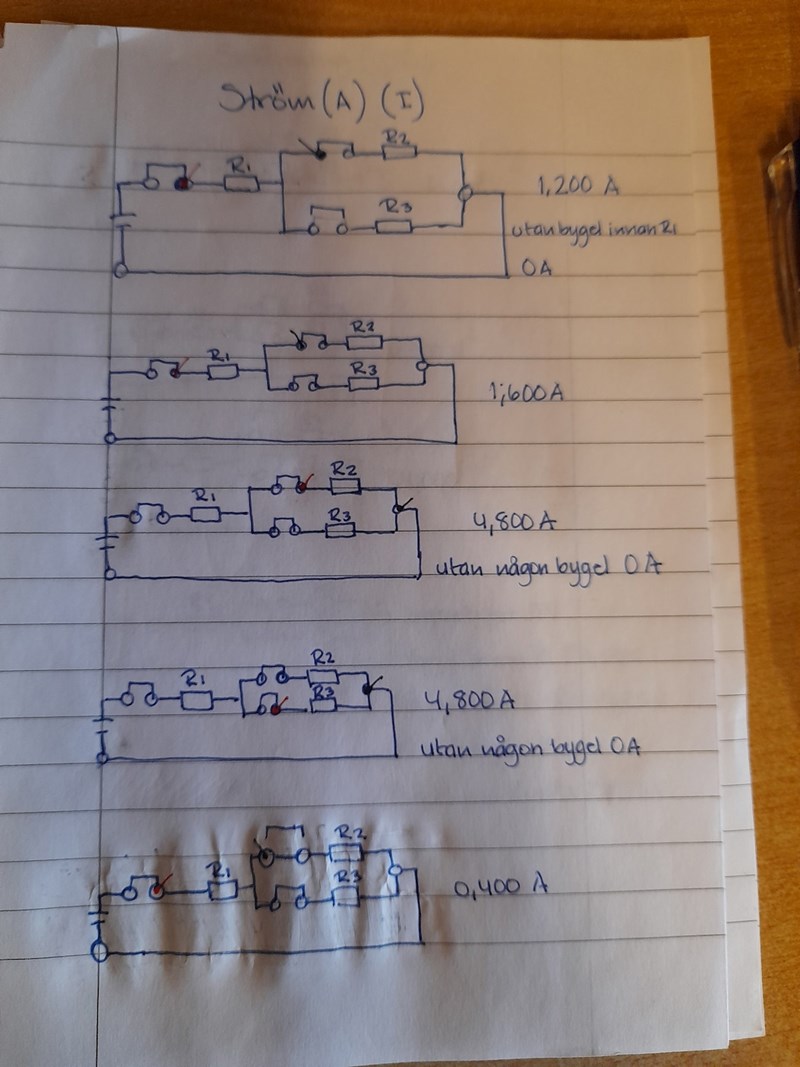 Ström (A) (I)
R2
R1
1,200 A
R3
utan bygel innan R1
0A
R2
R1
R3
1,600A
R2
R1
R3
4,800A
utan någon bygel 0A
R2
R1
R3
4,800A
utan någon bygel 0A
R2
R1
R3
0,400 A